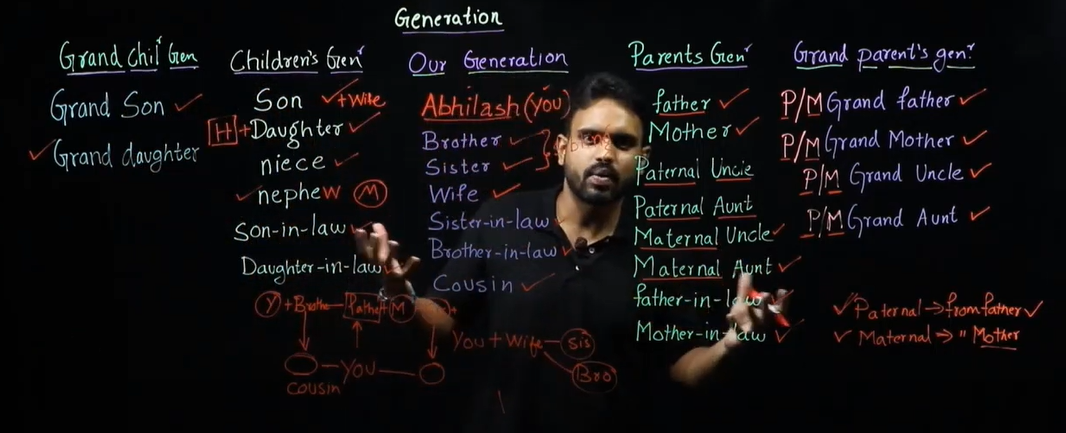 Generation
Grand Chilʳ Gen
Grand Son
Grand daughter
Children's Genʳ
Son + Wife
H + Daughter
niece
nephew M
Son-in-law
Daughter-in-law
Our Generation
Abhilash (you)
Brother
Sister
Wife
Sister-in-law
Brother-in-law
Cousin
Parents Genʳ
father
Mother
Paternal Uncle
Paternal Aunt
Maternal Uncle
Maternal Aunt
father-in-law
Mother-in-law
Grand parent's genʳ
P/M Grand father
P/M Grand Mother
P/M Grand Uncle
P/M Grand Aunt
Y + Brothe — Fathe + M
YOU
COUSIN
You + Wife — Sis
Bro
Paternal → from father
Maternal → " Mother